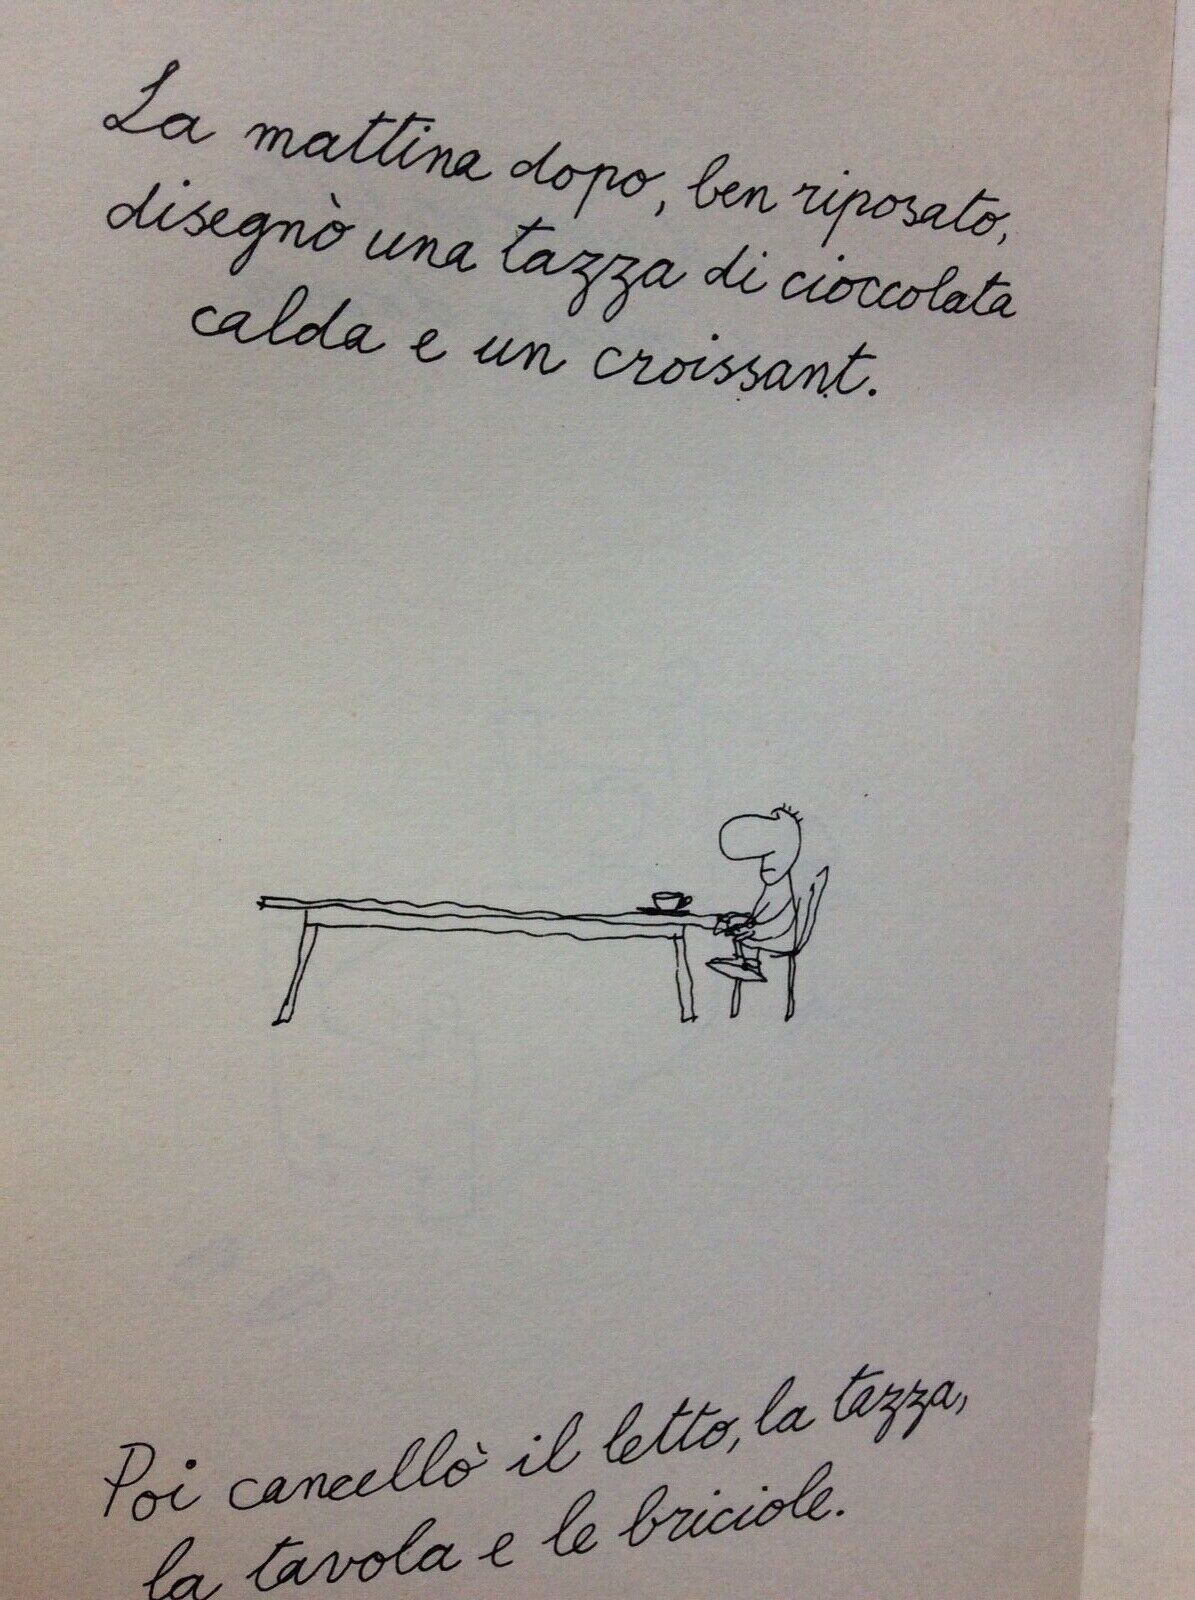 La mattina dopo, ben riposato,
disegnò una tazza di cioccolata
calda e un croissant.
Poi cancellò il letto, la tazza,
la tavola e le briciole.